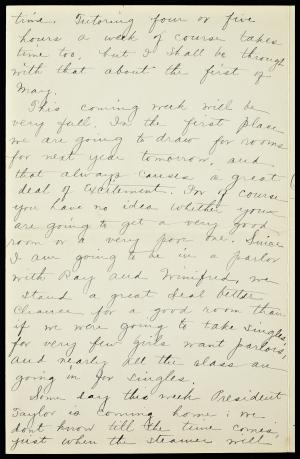 time. Tutoring four or five
hours a week of course takes
time too, but I shall be through
with that about the first of
May.
This coming week will be
very full. In the first place
we are going to draw for rooms
for next year tomorrow, and
that always causes a great
deal of excitement. For of course
you have no idea whether you
are going to get a very good
room or a very poor one. Since
I am going to be in a parlor
with Ray and Winifred, we
stand a great deal better
chance for a good room than
if we were going to take singles;
for very few girls want parlors,
and nearly all the class are
going in for singles.
Some day this week President
Taylor is coming home; we
dont know till the time comes,
just when the steamer will